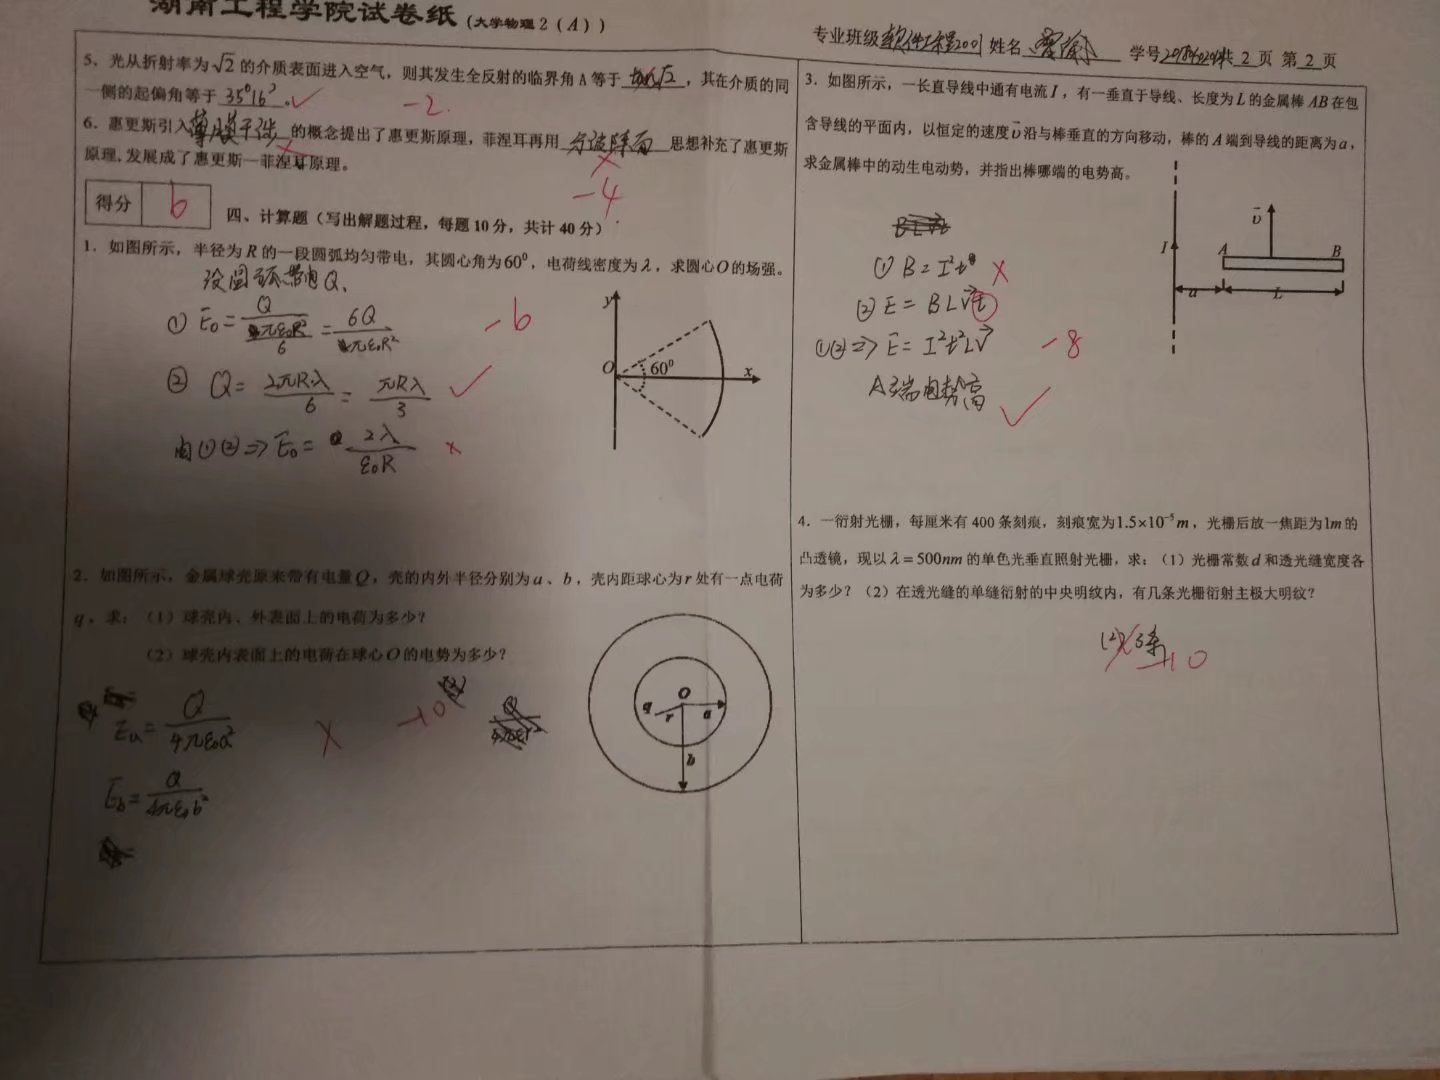 湖南工程学院试卷纸(大学物理2(A))
专业班级软件工程2001 姓名 学号 共 2 页 第 2 页
5、光从折射率为√2的介质表面进入空气，则其发生全反射的临界角A等于 √2，其在介质的同
一侧的起偏角等于 35°16′。
-2
6、惠更斯引入薄膜干涉的概念提出了惠更斯原理，菲涅耳再用分波阵面思想补充了惠更斯
原理，发展成了惠更斯—菲涅耳原理。
-4
得分 6
四、计算题（写出解题过程，每题10分，共计40分）
1．如图所示，半径为R的一段圆弧均匀带电，其圆心角为60⁰，电荷线密度为λ，求圆心O的场强。
设圆弧带电Q、
① E₀= Q/(πε₀R²/6) = 6Q/πε₀R²
-6
② Q= 2πRλ/6 = πRλ/3
由①②=> E₀= 2λ/ε₀R
y
O
60⁰
x
2．如图所示，金属球壳原来带有电量Q，壳的内外半径分别为a、b，壳内距球心为r处有一点电荷
q，求：（1）球壳内、外表面上的电荷为多少？
（2）球壳内表面上的电荷在球心O的电势为多少？
Ea= Q/4πε₀a²
-10
Eb= Q/4πε₀b²
O
q
r
a
b
3．如图所示，一长直导线中通有电流I，有一垂直于导线、长度为L的金属棒AB在包
含导线的平面内，以恒定的速度v沿与棒垂直的方向移动，棒的A端到导线的距离为a，
求金属棒中的动生电动势，并指出棒哪端的电势高。
① B=I²t
② E=BLvt
①②=> E=I²t²Lv
-8
A端电势高
v
I
A
B
a
L
4．一衍射光栅，每厘米有400条刻痕，刻痕宽为1.5×10⁻⁵m，光栅后放一焦距为1m的
凸透镜，现以λ=500nm的单色光垂直照射光栅，求：（1）光栅常数d和透光缝宽度各
为多少？（2）在透光缝的单缝衍射的中央明纹内，有几条光栅衍射主极大明纹？
(2) 3条
-10